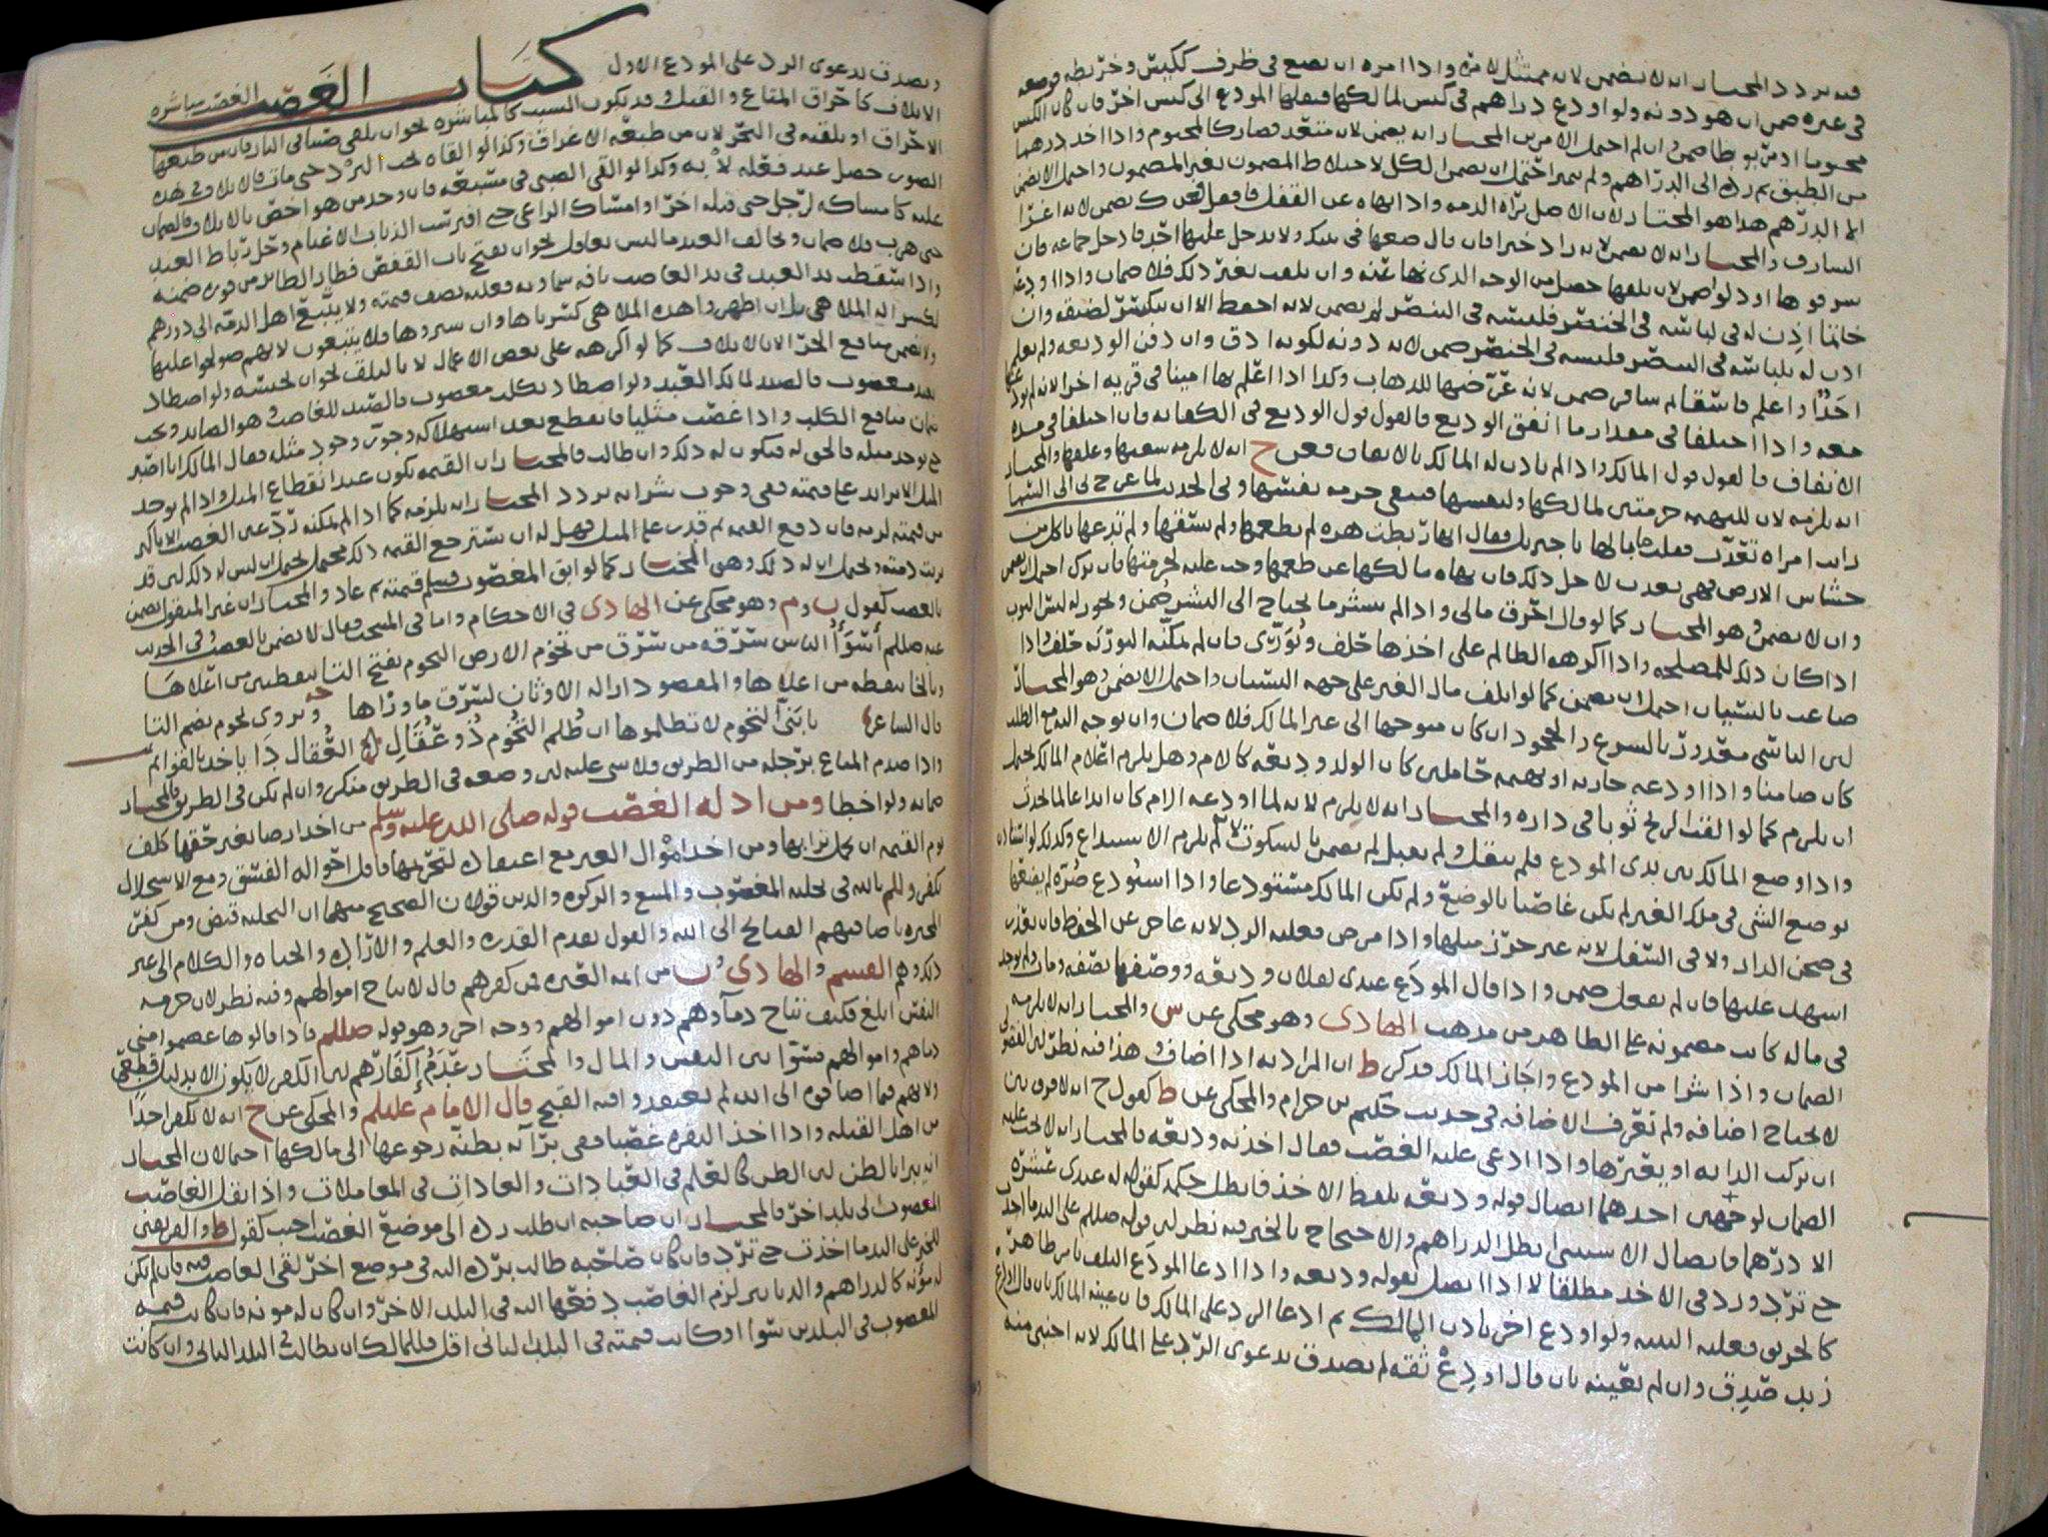 فيه تردد المختار انه لا يضمن لانه ممتثل لامره واذا امره ان يضع في ظرف ككيس وخريطه فوضعه
في غيره ضمن ان هو دونه ولو اودع دراهم في كيس لمالكها فنقلها المودع الى كيس اخر فان كان الكيس
مختوما او مربوطا ضمن وان لم احتمل الامرين المختار انه يضمن لانه متعد فصار كالمختوم واذا اخذ درهما
من الطبق ثم رده الى الدراهم ولم يتميز احتمل ان يضمن الكل لاختلاط المضمون بغير المضمون واحتمل الا يضمن
الا الدرهم هذا هو المختار لان الاصل براه الذمه واذا نهاه عن القفل فاقفل
السارق والمختار انه لا يضمن لانه زاد خيرا فان قال ضعها في بيتك ولا يدخل عليها احد فادخل جماعه فان
سرقوها او دلوا ضمن لان تلفها حصل من الوجه الذي نها عنه وان تلفت بغير ذلك فلا ضمان واذا اودعه
خاتما اذن له في لباسه في الخنصر فلبسه في البنصر لم يضمن لانه احفظ الا ان ينكسر لضيقه وان
اذن له بلباسه في البنصر فلبسه في الخنصر ضمن لانه دونه لكونه ادق وان دفن الوديعه ولم يعلم
احدا او اعلم فاسقا ثم سافر ضمن لانه عرضها للذهاب وكذا اذا اعلم بها امينا في قريه اخرا لانه لم
معه واذا اختلفا في مقدار ما انفق الوديع فالقول قول الوديع في الكفايه فان اختلفا في مده
الانفاق فالقول قول المالك واذا لم ياذن له المالك بالانفاق فعن ح انه لا يلزمه سقيها وعلفها والمختار
انه يلزمه لان للبهيمه حرمتين لمالكها ولنفسها فتبقى حرمه نفسها وفي الحديث لما عرج بي الى السما
رايت امراه تعذب فقلت ما بالها يا جبريل فقال انها ربطت هره لم تطعمها ولم تسقها ولم تدعها تاكل من
خشاش الارض فهي تعذب لاجل ذلك فان نهاه مالكها عن طعمها وجب عليه لحرمتها فان ترك احتمل ان يضمن
وان لا يضمن وهو المختار كما لو قال احرق مالي واذا لم ينشر ما يحتاج الى النشر ضمن ويجوز له لبس الثوب
اذا كان ذلك للمصلحه واذا اكرهه الظالم على اخذها حلف ويوري فان لم يمكنه التوريه حلف واذا
ضاعت بالنسيان احتمل ان يضمن كما لو اتلف مال الغير على جهه النسيان واحتمل الا يضمن وهو المختار
لان الناسي معذور بالشرع والجحود ان كان متوجها الى غير المالك فلا ضمان وان توجه اليه مع الطلب
كان ضامنا واذا اودعه جاريه او بهيمه حاملين كان الولد وديعه كالام وهل يلزم اعلام المالك يحتمل
ان يلزم كما لو القت الريح ثوبا في داره والمختار انه لا يلزم لانه لما اودعه الام كان ايداعا لما يحدث
واذا وضع المالك بين يدي المودع فلم ينقل ولم يقبل لم يضمن بالسكوت لانه لم يلزم الاستيداع وكذلك لو
بوضع الشي في ملك الغير لم يكن غاصبا بالوضع ولم يكن المالك مستودعا واذا استودع صره لم يضعها
في صحن الدار ولا في السفل لانه غير حرز مثلها واذا مرض فعليه الرد لانه عاجز عن الحفظ فان تعذر
اشهد عليها فان لم يفعل ضمن واذا قال المودع عندي لفلان وديعه ووصفها بصفه ومات ولم توجد
في ماله كانت مضمونه على الظاهر من مذهب الهادي وهو محكي عن س والمختار انه لا يلزمه
الضمان واذا شرا من المودع واجاز المالك فذكر ط ان المراد به اذا اضاف وهذا فيه نظر لان الفضولي
لا يحتاج اضافه ولم تعرف الاضافه في حديث حكيم بن حزام والمحكي عن ط كقول ح انه لا فرق بين
ان تركب الدابه او يعيرها واذا ادعى عليه الغصب فقال اخذته وديعه فالمختار انه لا يجب عليه
الضمان لوجهين احدهما اتصال قوله وديعه بلفظ الاخذ فابطل حكمه كقوله له عندي عشره
الا درهما فاتصال الاستثنا بطل الدراهم والاحتجاج بالخبر فيه نظر لان قوله صللم على اليد ما اخذت
حتى ترد ورد في الاخذ مطلقا لا اذا اتصل بقوله وديعه واذا ادعا المودع التلف بامر ظاهر
كالحريق فعليه البينه ولو اودع اخر باذن المالك ثم ادعا الرد على المالك فان عينه المالك بان قال اودع
زيد صدق وان لم يعينه بان قال اودع ثقه لم يصدق بدعوى الرد على المالك لانه اجنبي منه
ويصدق بدعوى الرد على المودع الاول
كتاب الغصب
الغصب مباشره
الاتلاف كاحراق المتاع والقتل وقد يكون السبب كالمباشره نحو ان يلقي صبيا في النار فان من طبعها
الاحراق او يلقيه في البحر لان من طبعه الاغراق وكذا لو القاه تحت البرد حتى مات فالاتلاف في هذه
الصور حصل عند فعله لا به وكذا لو القى الصبي في مسبعه فان وجد من هو اخص بالاتلاف فالضمان
عليه كامساكه لرجل حتى قتله اخر او امساك الراعي حتى افترست الذياب الاغنام وحل رباط العبد
حتى هرب فلا ضمان ويخالف العبد ما ليس بعاقل نحو ان يفتح باب القفص فطار الطاير من فوره ضمنه
واذا سقطت يد العبد في يد الغاصب بافه سماويه فعليه نصف قيمته ولا يتبع اهل الذمه الى دورهم
لكسر اله الملاهي بل ان اظهروا هذه الملاهي كسرناها وان ستروها فلا يتبعون لانهم صولحوا عليها
ولا تضمن منافع الحر الا بالاتلاف كما لو اكرهه على بعض الاعمال لا بالتلف نحو ان يحبسه ولو اصطاد
بعبد مغصوب فالصيد لمالك العبد ولو اصطاد بكلب مغصوب فالصيد للغاصب وهو الصايد ويجب
ضمان منافع الكلب واذا غصب مثليا فانقطع بعد استهلاكه وجوب وجود مثله فقال المالك انا اصبر
حتى يوجد مثله فالحق له فيكون له ذلك وان طالب فالمختار ان القيمه تكون عند انقطاع المثل واذا لم يوجد
المثل الا بزايد على قيمته ففي وجوب شرايه تردد المختار انه يلزمه كما اذا لم يمكنه رد عين الغصب الا باكثر
من قيمته لزمه فان دفع القيمه ثم قدر على المثل فهل له ان يسترجع القيمه ذلك محتمل يحتمل ان ليس له ذلك لان قد
بريت ذمته ويحتمل ان له ذلك وهو المختار كما لو ابق المغصوب فسلم قيمته ثم عاد والمختار ان غير المنقول يضمن
بالغصب كقول ن وم وهو محكي عن الهادي في الاحكام واما في المنتخب فقال لا يضمن بالغصب وفي الحديث
عنه صللم اسوا الناس سرقه من سرق من تخوم الارض التخوم بفتح التا بنقطتين من اعلاها
وبالخا بنقطه من اعلاها والمقصود ازاله الاوثان لتسرق ما وراها ويروى تخوم بضم التا
قال الشاعر يا بني التخوم لا تظلموها ان ظلم التخوم ذو عقال العقال دا ياخذ بالقوايم
واذا صدم المتاع برجله من الطريق فلا شي عليه لان وضعه في الطريق منكر وان لم يكن في الطريق فالمختار
ضمانه ولو اخطا ومن ادله الغصب قوله صلى الله عليه وسلم من اخذ ارضا بغير حقها كلف
يوم القيمه ان يحمل ترابها ومن اخذ اموال الغير مع اعتقاد لتحريمها فاقل احواله الفسق ومع الاستحلال
يكفر وللم بالله في تخليه المغصوب والمبيع والزكوه والدين قولان الصحيح منهما ان التخليه قبض ومن كفر
المجبره باضافتهم القبايح الى الله والقول بقدم القدره والعلم والاراده والحياه والكلام الى غير
ذلك وهم القسم والهادي ون من ايمه العتره من كفرهم قال لا يباح اموالهم وفيه نظر لان حرمه
النفس ابلغ فكيف تباح دمآوهم دون اموالهم ووجه اخر وهو قوله صللم فاذا قالوها عصموا مني
دماهم واموالهم فسوا بين النفس والمال والمختار عدم إكفارهم لان الكفر لا يكون الا بدليل قطعي
ولانهم فيما اضافوه الى الله لم يعتقدوا فيه القبح قال الامام عليلم والمحكي عن ح انه لا يكفر احدا
من اهل القبله واذا اخذ البقره غصبا ففي برآته بظنه رجوعها الى مالكها احتمالان المختار
انه يبرا بالظن لان الظن كالعلم في العبادات والعادات في المعاملات واذا نقل الغاصب
المغصوب الى بلد اخر فالمختار ان صاحبه ان طلب رده الى موضع الغصب اجب كقول ط والفريقين
للخبر على اليد ما اخذت حتى ترد فان كان صاحبه طالب برده اليه في موضع اخر لقي الغاصب فيه فان لم يكن
له مؤنه كالدراهم والدنانير لزم الغاصب دفعها اليه في البلد الاخر وان كان له مونه فان كانت قيمه
المغصوب في البلدين سوا او كانت قيمته في البلد الثاني اقل فللمالك ان يطالب في البلد الثاني وان كانت